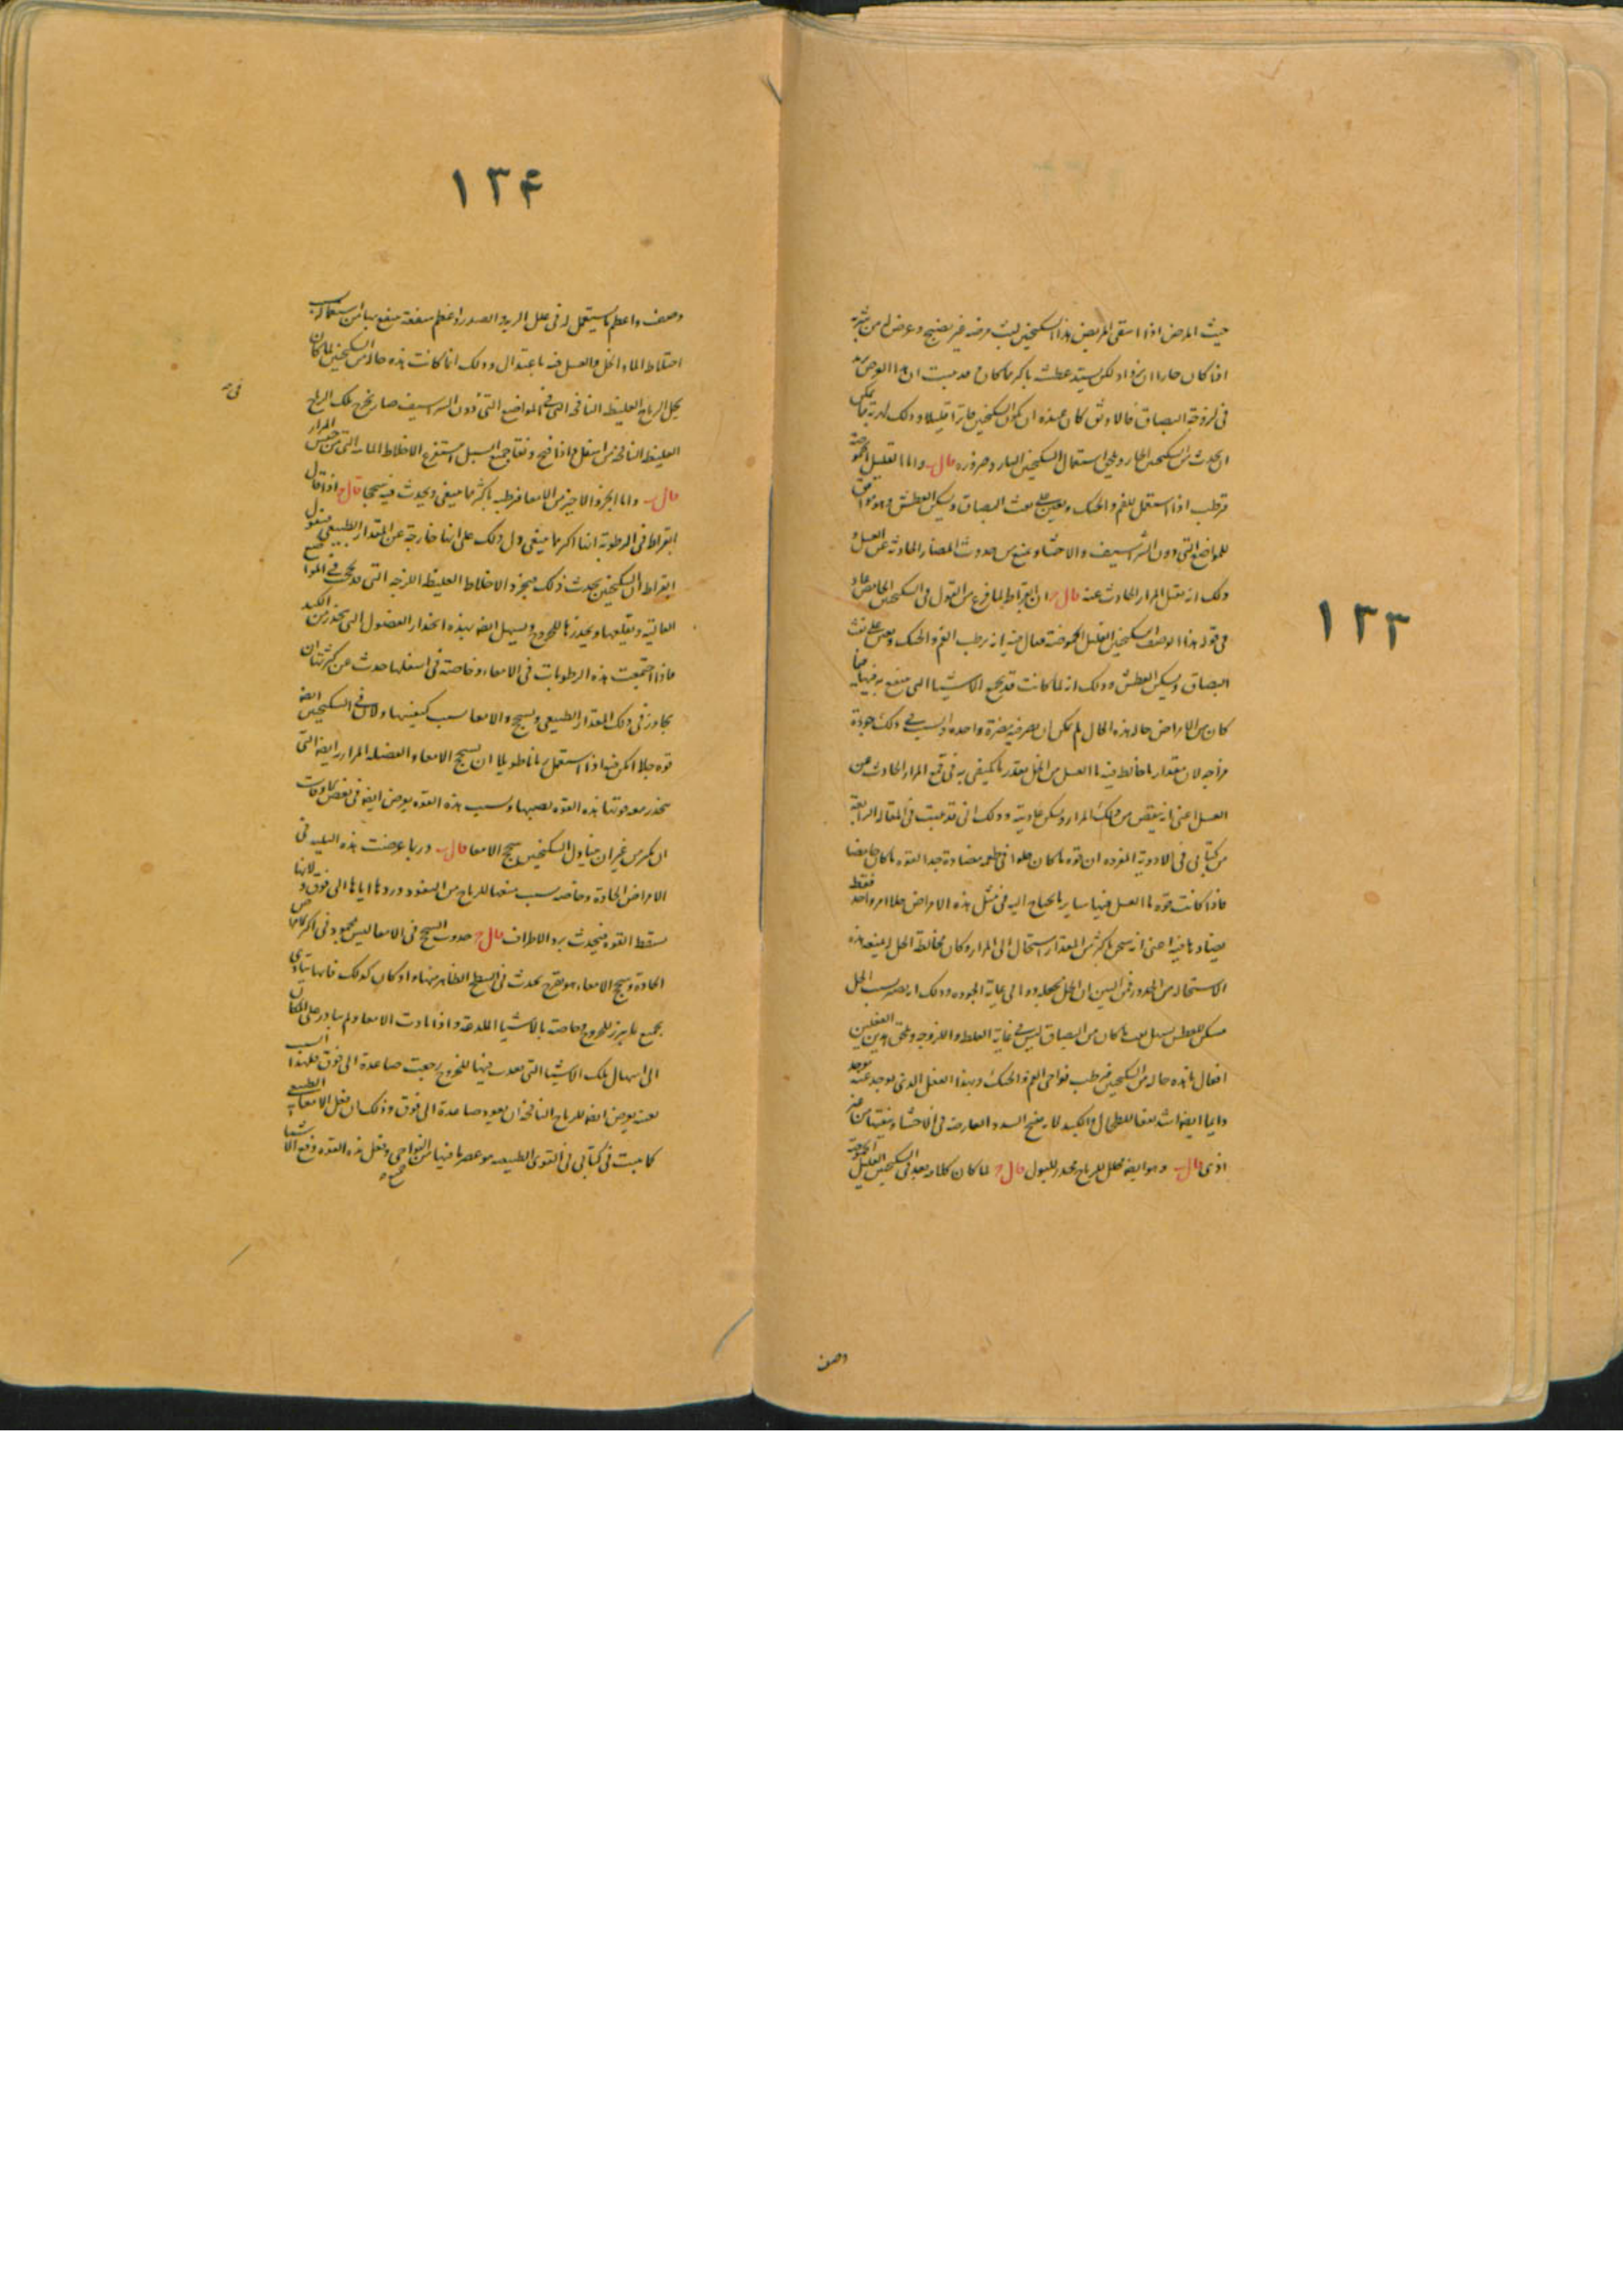 ١٣٣
حيث المرض اذا استقى المريض هذا السكنجبين لبث مرضه غير نضيج وعرض له من شربه
اذا كان حارا ان يزداد لكن يشتد عطشه باكثر مما كان
فى لزوجة البصاق فالاوثق كان عنده ان يكون السكنجبين فاترا قليلا وذلك
ان يحدث من السكنجبين الحار ويلحق استعمال السكنجبين البارد ضرورة قال ب واما القليل الحموضة
فرطب اذا استعمل للفم والحنك ويعين على نفث البصاق ويسكن العطش وهو موافق
للمواضع التى دون الشراسيف والاحشاء ويمنع من حدوث المضار الحادثة عن العسل
وذلك انه يقتل المرار الحادث عنه قال ج ان ابقراط لما فرغ من القول فى السكنجبين الحامض عاد
فى قوله هذا الى وصف السكنجبين القليل الحموضة فقال فيه انه يرطب الفم والحنك ويعين على نفث
البصاق ويسكن العطش وذلك انه لما كانت قد تجتمع الاشياء التى ينتفع بها فيما
كان من الامراض حاله هذه الحال لم يمكن ان يضر فيه مضرة واحدة والسبب فى ذلك جودة
مزاجه لان مقدار ما خالط فيه ماء العسل من الخل بقدر ما يكتفى به فى قمع المرار الحادث عن
العسل اعنى انه ينقص من ذلك المرار ويسكن عاديته وذلك انى قد بينت فى المقالة الرابعة
من كتابى فى الادوية المفردة ان قوة ما كان حلوا فى طعمه مضادة جدا لقوة ما كان حامضا
فاذا كانت قوة ماء العسل فيها ساير ما يحتاج اليه فى مثل هذه الامراض خلا امر واحد فقط
يضاد ما فيه اعنى انه يسخن باكثر من المقدار استحال الى المرار وكان مخالطة الخل له يمنعه هذه
الاستحالة من البين ان الخل يجعله دواء الى غاية الجودة وذلك انه يصير بسبب الخل
مسكن للعطش يسهل نفث ما كان من البصاق ليس فى غاية الغلظ واللزوجة ويلحق هذين الفعلين
افعال ما هذه حاله من السكنجبين فيرطب نواحى الفم والحنك وبهذا الفعل الذى يوجد عنه
دايما ايضا اشد نفعا للطحال والكبد لانه يفتح السدد العارضة فى الاحشاء وينقيها من غير
اذى قال ب وهو ايضا محلل للرياح محدر للبول قال ج لما كان كلامه بعد فى السكنجبين القليل الحموضة
وصف
١٣٤
وصف واعظم ما يستعمل له فى علل الرية والصدر واعظم منفعة ينتفع بها من استعماله بسبب
اختلاط الماء والخل والعسل فيه باعتدال وذلك انما كانت هذه حاله من السكنجبين لما كان
يحل الرياح الغليظة النافخة التى فى المواضع التى دون الشراسيف صار يخرج تلك الرياح
فى
الغليظة النافخة من اسفل واذا فتح ونقا جميع السبل استفرغ الاخلاط المائية التى من جنس المرار
قال ب واما الجزو الاخير من الامعا فرطبه باكثر مما ينبغى ويحدث فيه سحجا قال ج اذا قال
ابقراط فى الرطوبة انها اكثر مما ينبغى دل ذلك على انها خارجة عن المقدار الطبيعى فيقول
ابقراط ان السكنجبين يحدث ذلك بجرد الاخلاط الغليظة اللزجة التى قد لحجت فى المواضع
العالية ويقلعها ويحدرها للخروج ويسهل ايضا بهذه انحدار الفضول التى تنحدر من الكبد
فاذا اجتمعت هذه الرطوبات فى الامعاء وخاصة فى اسفلها حدث عن كثرتها ان
تجاوز فى ذلك المقدار الطبيعى وتسحج الامعا بسبب كيفيتها ولان فى السكنجبين ايضا
قوة جلا امكن فيه اذا استعمل زمانا طويلا ان يسحج الامعاء والفضلة المرارية ايضا التى
تنحدر معه قوتها هذه القوة بعينها وبسبب هذه القوة يعرض ايضا فى بعض الاوقات
ان يكثر من غير ان يتناول السكنجبين سحج الامعا قال ب وربما عرضت هذه البلية فى
الامراض الحادة وخاصة بسبب منعها للرياح من النفوذ وردها اياها الى فوق ولانها
تسقط القوة فيحدث برد الاطراف قال ج حدوث السحج فى الامعا ليس محمود فى اكثر الامراض
الحادة وسحج الامعاء هو تقرح يحدث فى السطح الظاهر منها واذ كان كذلك فانها تتاذى
بجميع ما يبرز للخروج وخاصة بالاشياء اللذاعة واذا تاذت الامعاء ولم يبادر على المكان
الى اسهال تلك الاشيا التى نفذت فيها للخروج رجعت صاعدة الى فوق فلهذا السبب
بعينه يعرض ايضا للرياح النافخة ان تعود صاعدة الى فوق وذلك ان فعل الامعاء الطبيعى
كما بينت فى كتابى فى القوى الطبيعية هو عصر ما فيها من النواحى وفعل هذه القوة دفع الاشيا